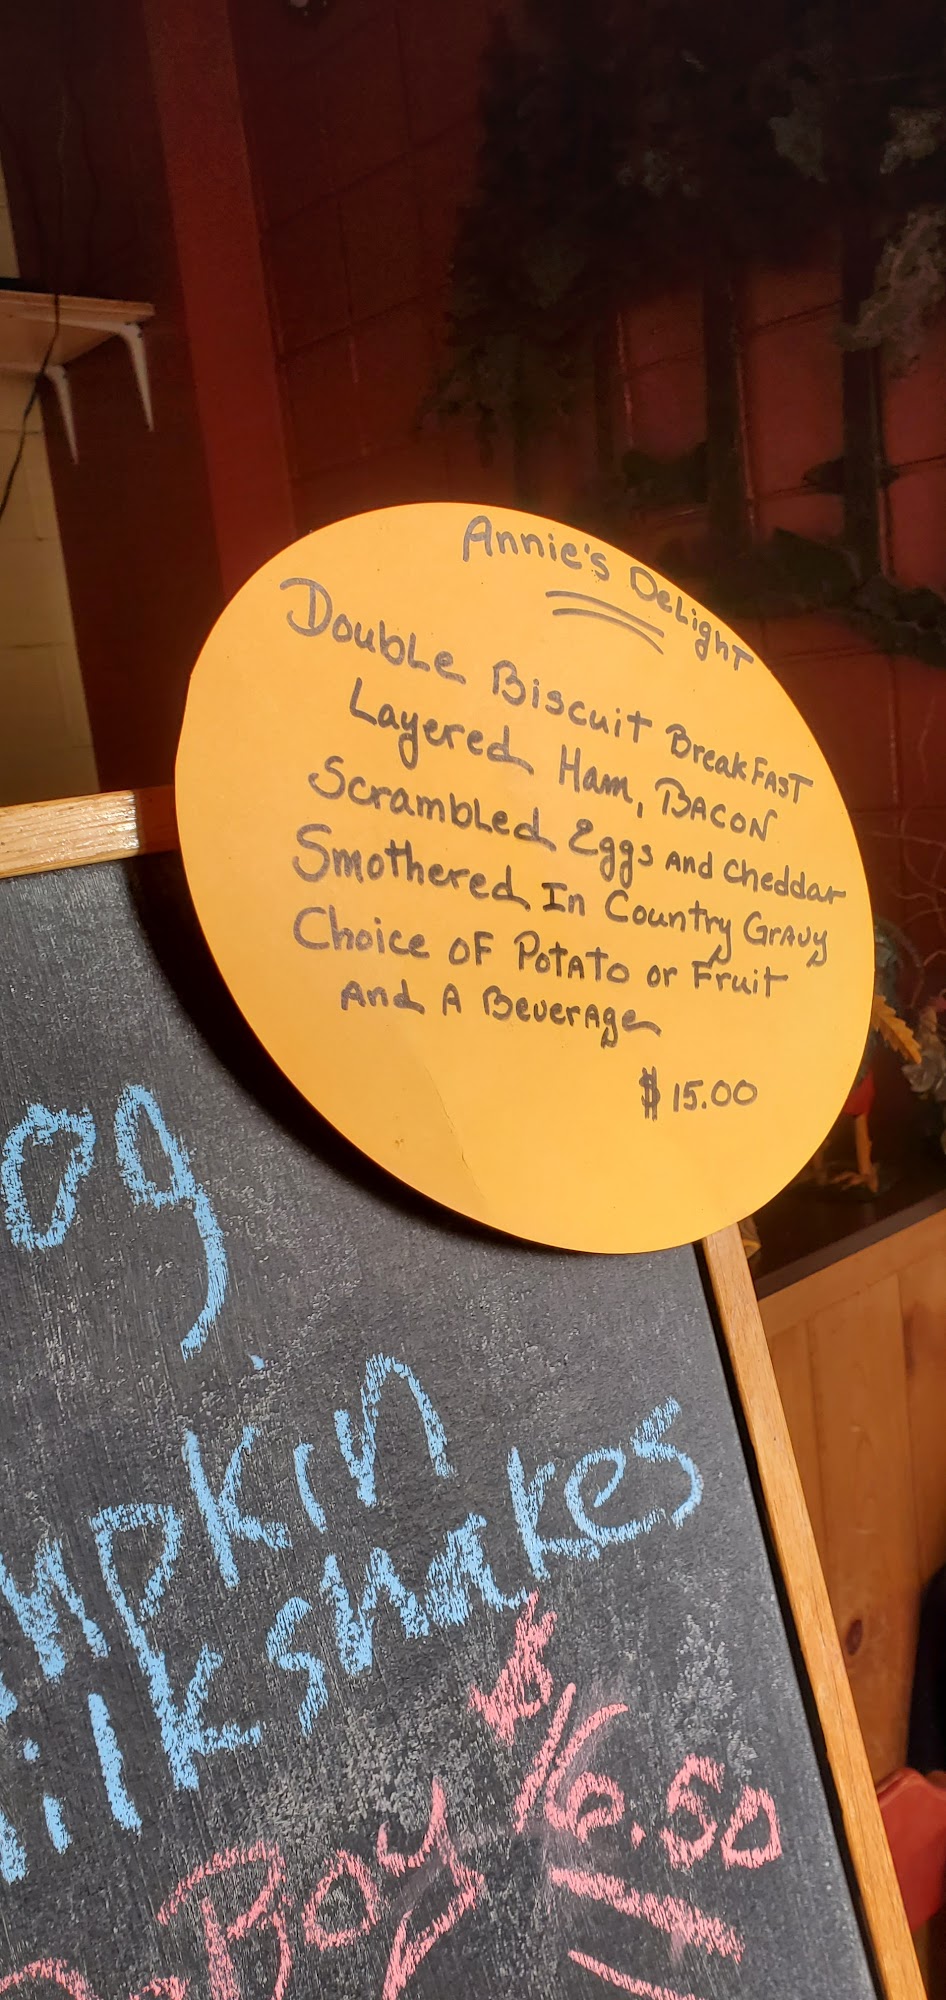 Annie's Delight
Double Biscuit Breakfast
Layered Ham, Bacon
Scrambled Eggs and Cheddar
Smothered In Country Gravy
Choice of Potato or Fruit
And A Beverage
$15.00
og
mpkin
ilkshakes
Boy $16.50